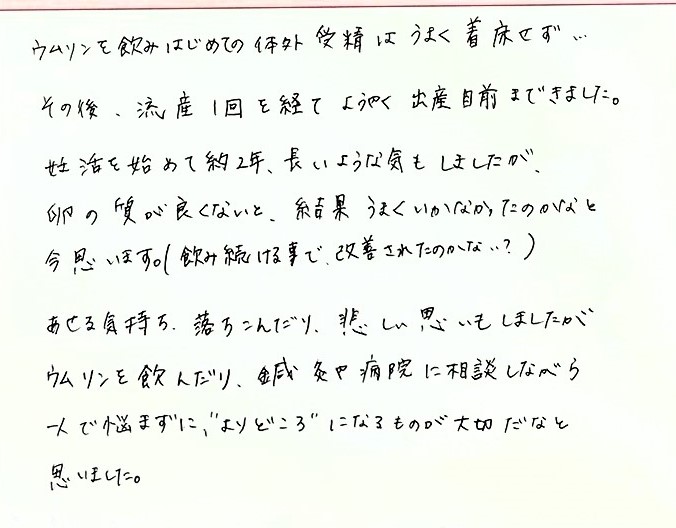 ウムリンを飲みはじめての体外受精はうまく着床せず…
その後、流産1回を経てようやく出産目前まできました。
妊活を始めて約2年、長いような気もしましたが、
卵の質が良くないと、結果うまくいかなかったのかなと
今思います。(飲み続ける事で、改善されたのかな…?)
あせる気持ち、落ちこんだり、悲しい思いもしましたが
ウムリンを飲んだり、鍼灸や病院に相談しながら
一人で悩まずに、"よりどころ"になるものが大切だなと
思いました。